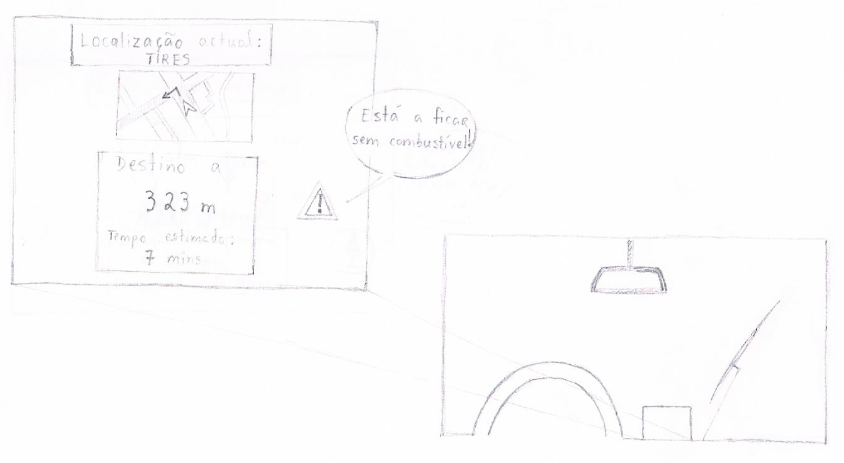 Localização actual:
TIRES
Destino a
323 m
Tempo estimado:
7 mins
Está a ficar
sem combustível!
!